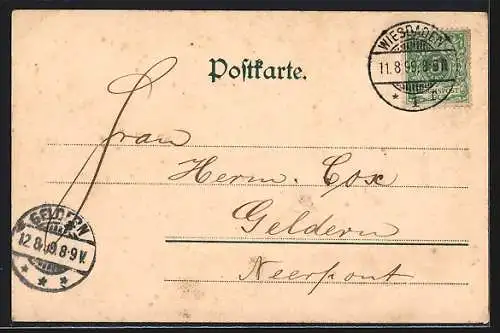 Postkarte.
WIESBADEN
11.8.99. 8-9 N.
* 1 f
Frau
Herm. Cox
Geldern
Neerpont
GELDERN
12.8.99. 8-9 V.
* * *